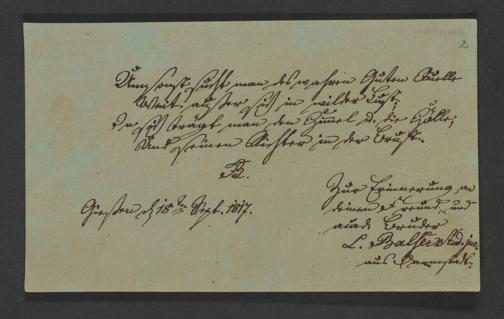 2
Umsonst sucht man des wahren Guten Quelle
Weit außer sich in wilder Lust;
In sich trägt man den Himmel u. die Hölle,
Und seinen Richter in der Brust.
Gießen d 18ten Sept. 1817.
Zur Erinnerung an
deinen Freund und
Bruder
L. Balser Stud. jur.
aus Darmstadt.